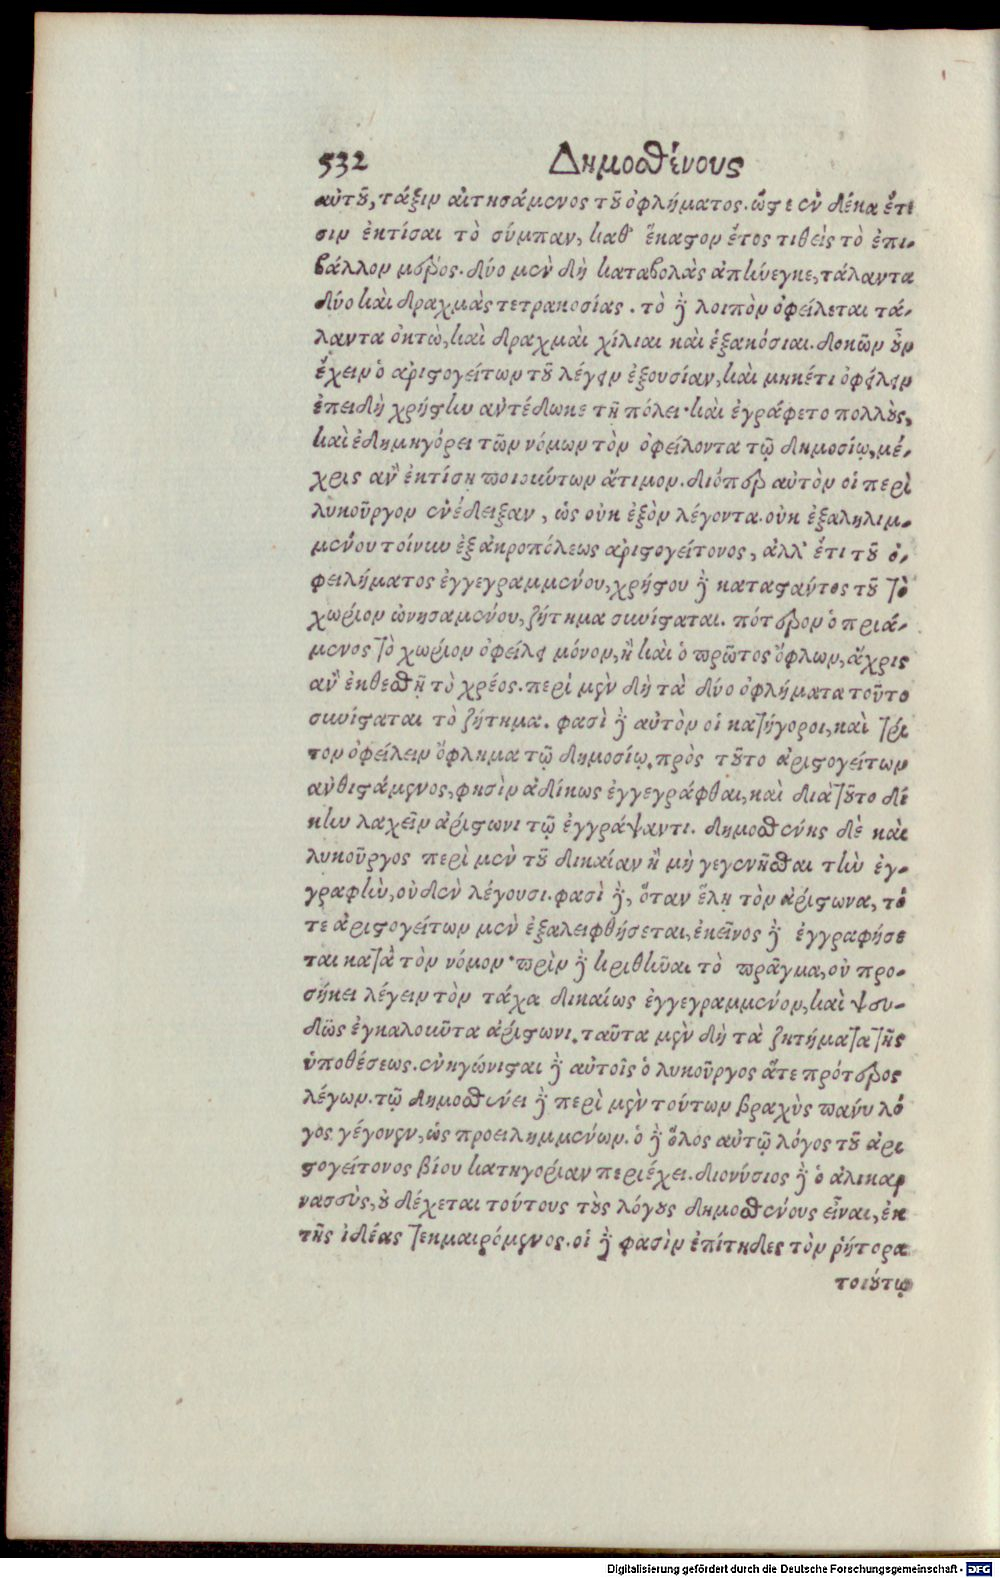 532 Δημοσθένους
αὐτοῦ, τάξιν αἰτησάμενος τοῦ ὀφλήματος. ὥστε ἐν δέκα ἔτε
σιν ἐκτίσαι τὸ σύμπαν, καθ' ἕκαστον ἔτος τιθεὶς τὸ ἐπι-
βάλλον μέρος. δύο μὲν δὴ καταβολὰς ἀπήνεγκε, τάλαντα
δύο καὶ δραχμὰς τετρακοσίας. τὸ δὲ λοιπὸν ὀφείλεται τά-
λαντα ὀκτὼ, καὶ δραχμαὶ χίλιαι καὶ ἑξακόσιαι. δοκῶν οὖν
ἔχειν ὁ ἀριστογείτων τοῦ λέγειν ἐξουσίαν, καὶ μηκέτι ὀφείλειν
ἐπειδὴ χρήστην ἀντέδωκε τῇ πόλει· καὶ ἐγράφετο πολλοὺς,
καὶ ἐδημηγόρει τῶν νόμων τὸν ὀφείλοντα τῷ δημοσίῳ, μέ-
χρις ἂν ἐκτίσῃ ποιούντων ἄτιμον. διόπερ αὐτὸν οἱ περὶ
λυκοῦργον ἐνέδειξαν, ὡς οὐκ ἐξὸν λέγοντα. οὐκ ἐξαληλιμ-
μένου τοίνυν ἐξ ἀκροπόλεως ἀριστογείτονος, ἀλλ' ἔτι τοῦ ὀ-
φειλήματος ἐγγεγραμμένου, χρήστου δὲ καταστάντος τοῦ τὸ
χωρίον ὠνησαμένου, ζήτημα συνίσταται. πότερον ὁ πριά-
μενος τὸ χωρίον ὀφείλει μόνον, ἢ καὶ ὁ πρῶτος ὄφλων, ἄχρις
ἂν ἐκτεθῇ τὸ χρέος. περὶ μὲν δὴ τὰ δύο ὀφλήματα τοῦτο
συνίσταται τὸ ζήτημα. φασὶ δὲ αὐτὸν οἱ κατήγοροι, καὶ τρί
τον ὀφείλειν ὄφλημα τῷ δημοσίῳ. πρὸς τοῦτο ἀριστογείτων
ἀνθιστάμενος, φησὶν ἀδίκως ἐγγεγράφθαι, καὶ διὰ τοῦτο δί
κην λαχεῖν ἀρίστωνι τῷ ἐγγράψαντι. δημοσθένης δὲ καὶ
λυκοῦργος περὶ μὲν τοῦ δικαίαν ἢ μὴ γεγενῆσθαι τὴν ἐγ-
γραφὴν, οὐδὲν λέγουσι. φασὶ δὲ, ὅταν ἕλῃ τὸν ἀρίστωνα, τό
τε ἀριστογείτων μὲν ἐξαλειφθήσεται, ἐκεῖνος δὲ ἐγγραφήσε
ται κατὰ τὸν νόμον· πρὶν δὲ κριθῆναι τὸ πρᾶγμα, οὐ προ-
σήκει λέγειν τὸν τάχα δικαίως ἐγγεγραμμένον, καὶ ψευ-
δῶς ἐγκαλοῦντα ἀρίστωνι. ταῦτα μὲν δὴ τὰ ζητήματα τῆς
ὑποθέσεως. ἐνηγώνισται δὲ αὐτοῖς ὁ λυκοῦργος ἅτε πρότερος
λέγων. τῷ δημοσθένει δὲ περὶ μὲν τούτων βραχὺς πάνυ λό
γος γέγονεν, ὡς προειλημμένων. ὁ δὲ ὅλος αὐτῷ λόγος τοῦ ἀρι
στογείτονος βίου κατηγορίαν περιέχει. διονύσιος δὲ ὁ ἁλικαρ
νασσεὺς, οὐ δέχεται τούτους τοὺς λόγους δημοσθένους εἶναι, ἐκ
τῆς ἰδέας τεκμαιρόμενος. οἱ δὲ φασὶν ἐπίτηδες τὸν ῥήτορα
τοιούτῳ
Digitalisierung gefördert durch die Deutsche Forschungsgemeinschaft - DFG